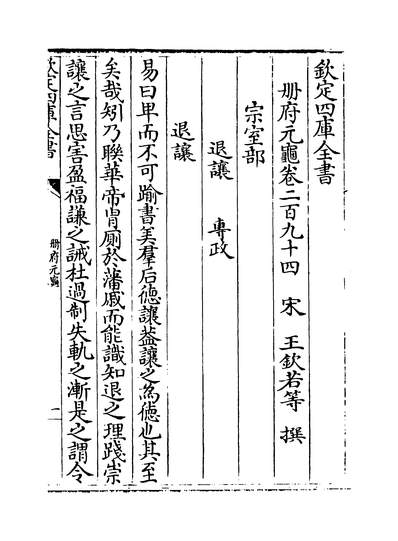 欽定四庫全書
冊府元龜卷二百九十四　宋　王欽若等　撰
宗室部
退讓　專政
退讓
易曰卑而不可踰書美羣后德讓葢讓之為德也其至
矣哉矧乃聯華帝胄厠於藩戚而能識知退之理踐崇
讓之言思害盈福謙之誡杜過制失軌之漸是之謂令
欽定四庫全書
冊府元龜
一